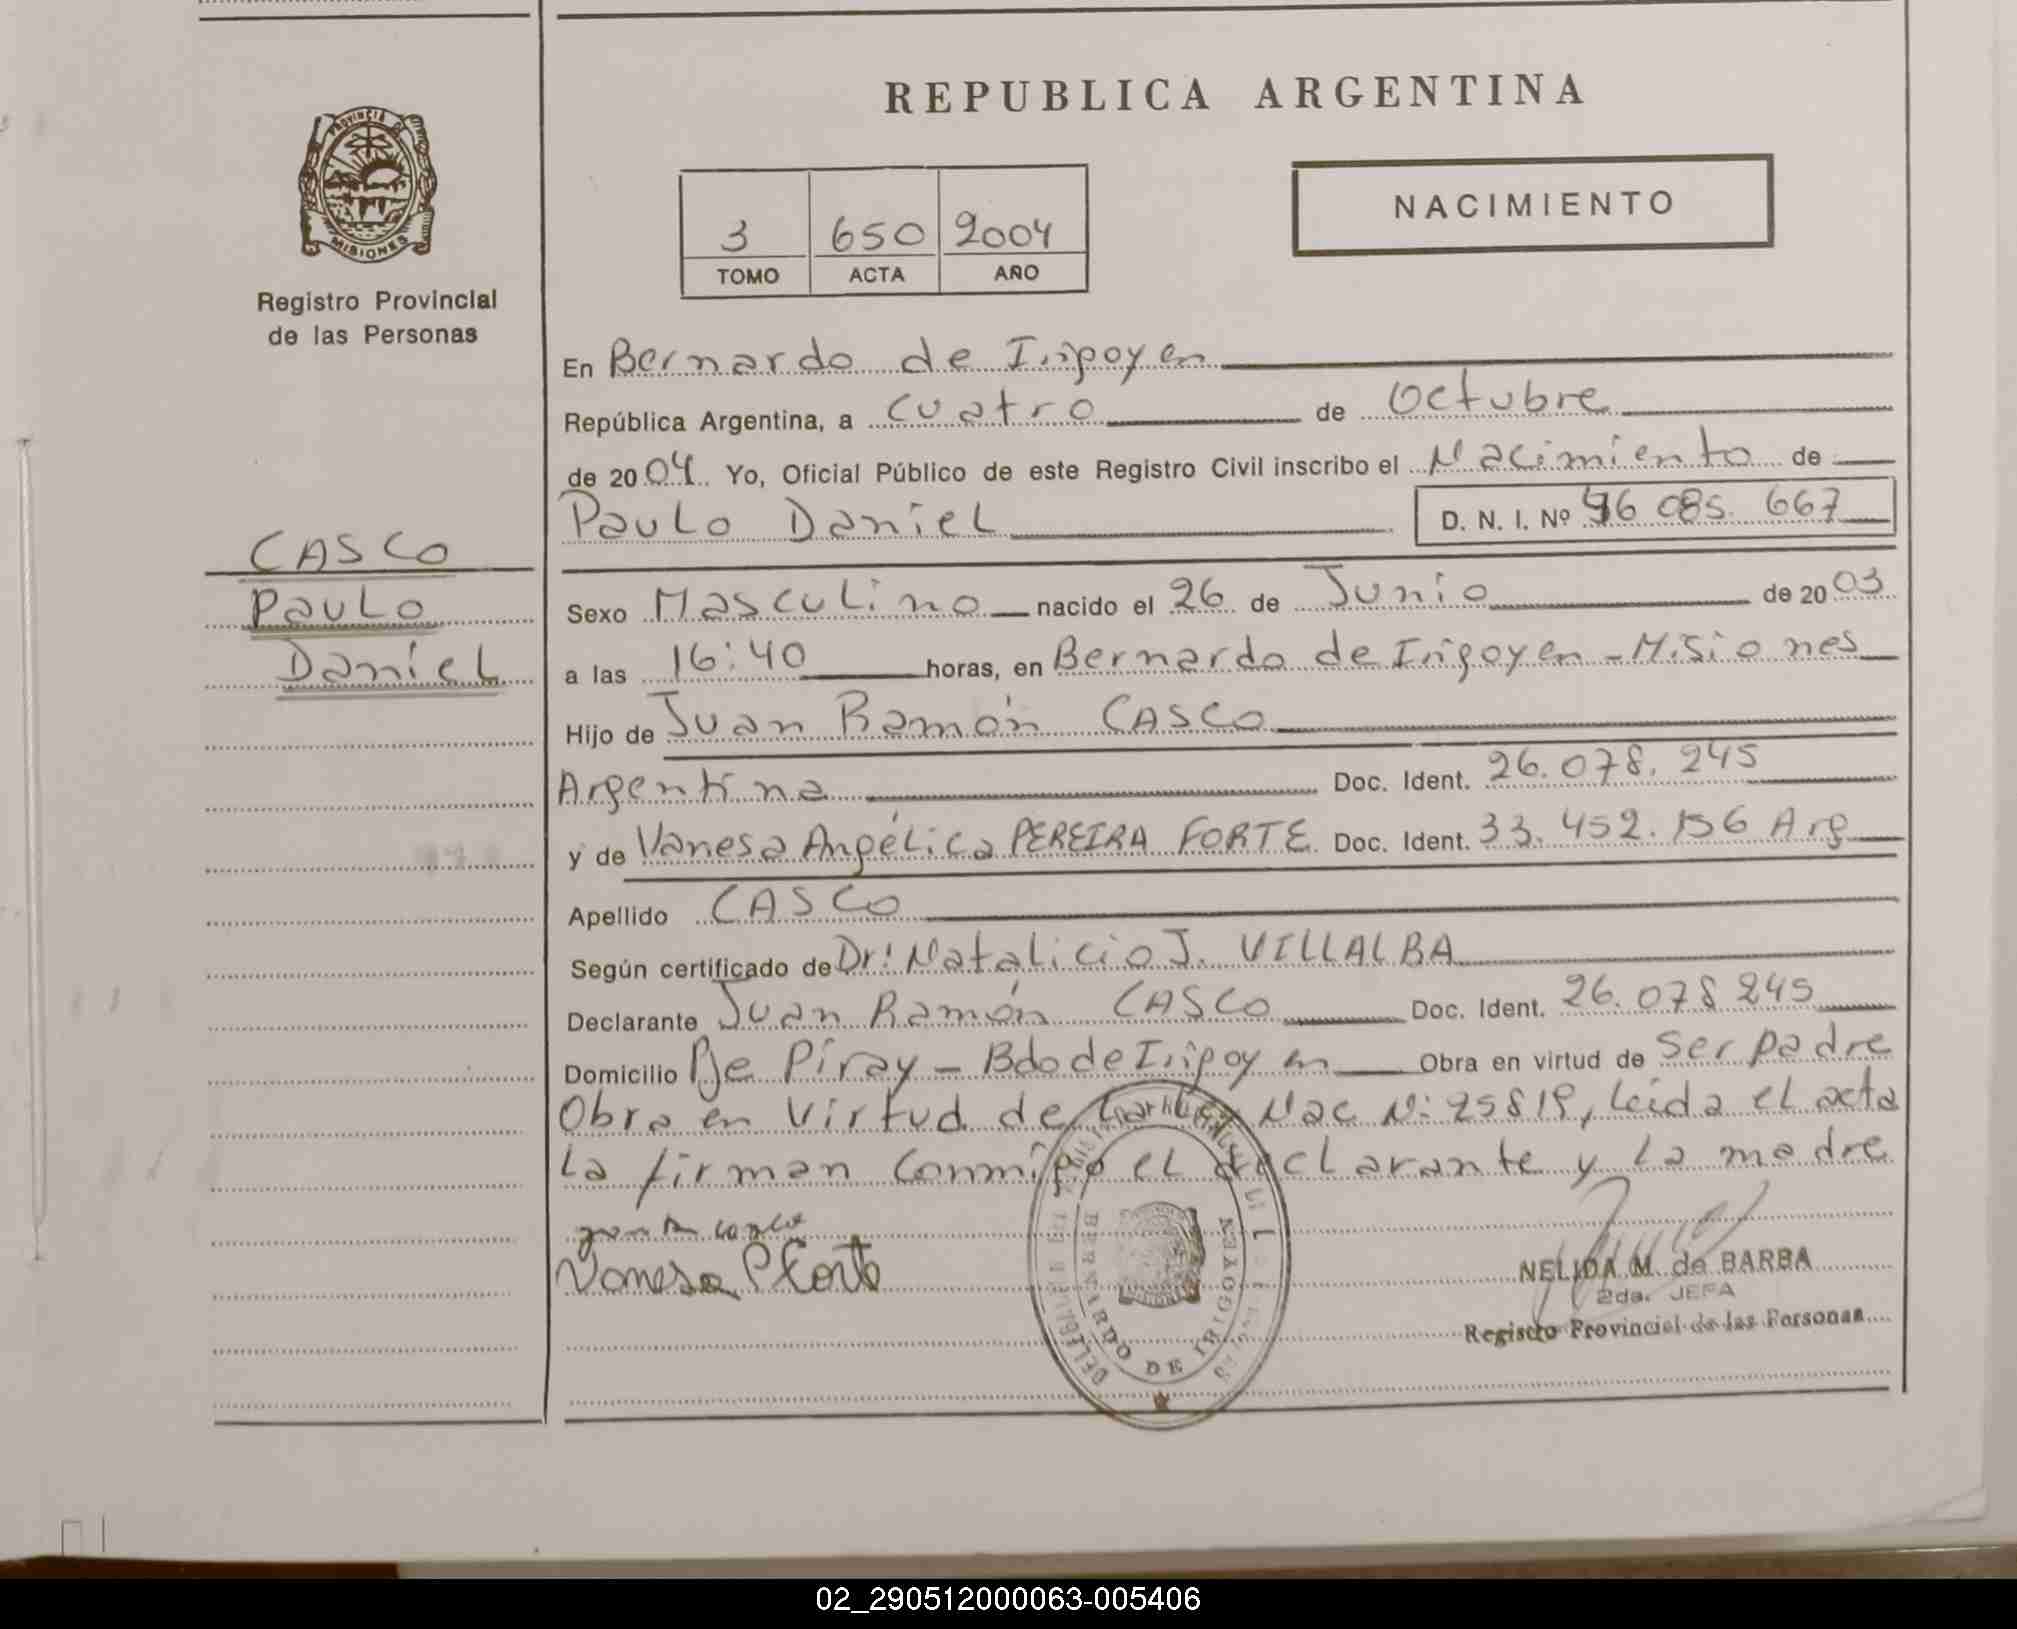 REPUBLICA ARGENTINA
PROVINCIA DE
MISIONES
Registro Provincial
de las Personas
3 650 2004
TOMO ACTA AÑO
NACIMIENTO
En Bernardo de Irigoyen
República Argentina, a cuatro de Octubre
de 2004. Yo, Oficial Público de este Registro Civil inscribo el Nacimiento de
Paulo Daniel D. N. I. Nº 46 085. 667
CASCO
Paulo
Daniel
Sexo Masculino nacido el 26 de Junio de 2003
a las 16:40 horas, en Bernardo de Irigoyen - Misiones
Hijo de Juan Ramón CASCO
Argentina Doc. Ident. 26.078.245
y de Vanesa Angélica PEREIRA FORTE Doc. Ident. 33.452.156 Arg
Apellido CASCO
Según certificado de Dr: Natalicio J. VILLALBA
Declarante Juan Ramón CASCO Doc. Ident. 26.078 245
Domicilio Pje Piray - Bdo de Irigoyen Obra en virtud de ser padre
Obra en virtud de Nac Nº: 25819, leída el acta
la firman conmigo el declarante y la madre
Vanesa P Forte
BERNARDO DE IRIGOYEN
NELIDA M. de BARBA
2da. JEFA
Registro Provincial de las Personas
02_290512000063-005406